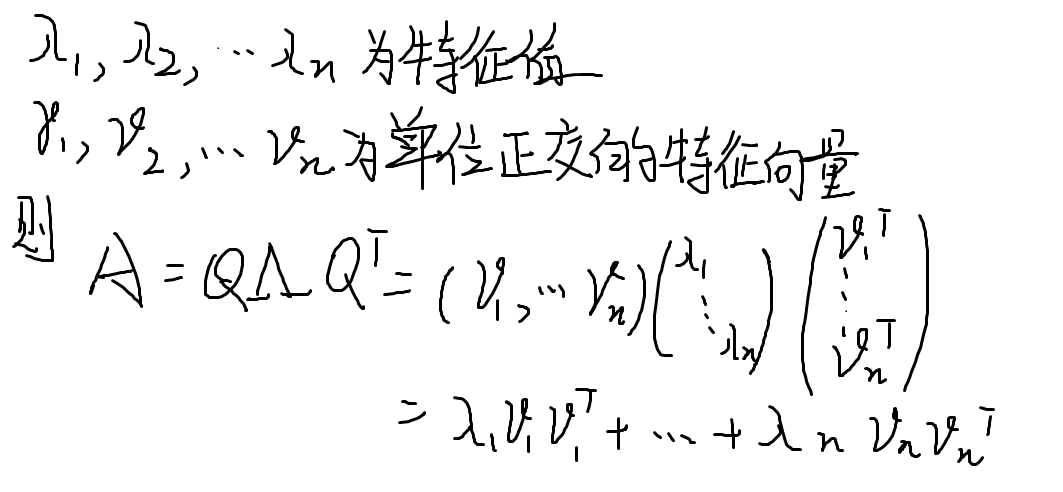 λ₁, λ₂, ⋯ λₙ 为特征值
γ₁, ν₂, ⋯ νₙ 为单位正交的特征向量
则 A = QΛQᵀ = (ν₁, ⋯ νₙ)(λ₁ ⋱ λₙ)(ν₁ᵀ ⋮ νₙᵀ)
= λ₁ν₁ν₁ᵀ + ⋯ + λₙ νₙνₙᵀ